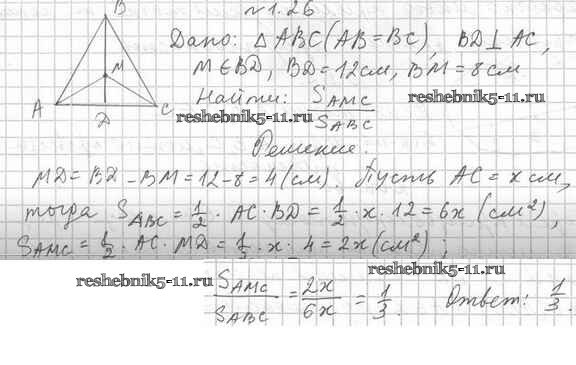 №1.26
B
Дано: △ABC (AB=BC), BD⊥AC,
M∈BD, BD=12см, BM=8см
M
Найти: S_AMC / S_ABC
A
C
D
reshebnik5-11.ru
Решение.
MD=BD-BM=12-8=4(см). Пусть AC=x см,
тогда S_ABC=1/2·AC·BD=1/2·x·12=6x (см²),
S_AMC=1/2·AC·MD=1/2·x·4=2x(см²);
reshebnik5-11.ru
reshebnik5-11.ru
S_AMC / S_ABC = 2x/6x = 1/3. Ответ: 1/3.